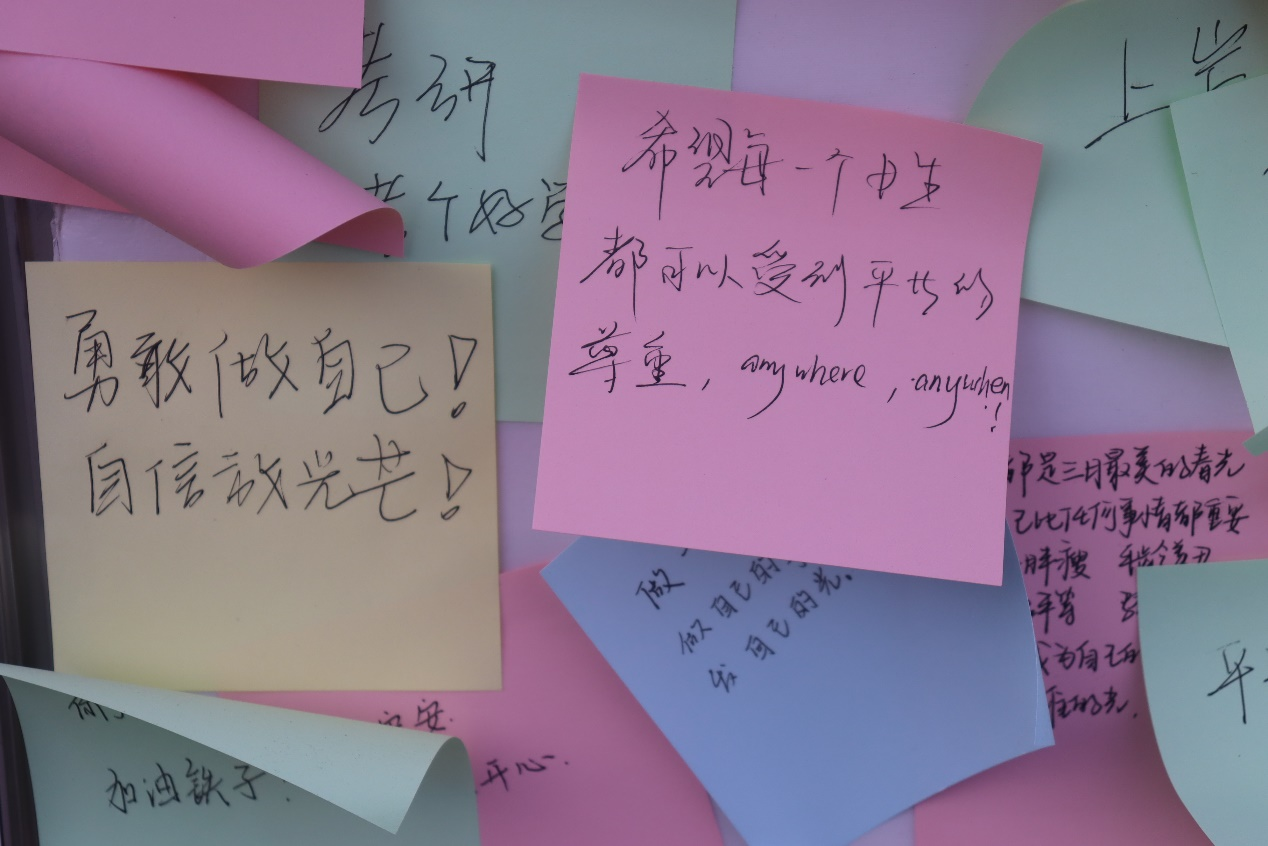 考研
个好
上岸
希望每一个女生
都可以受到平等的
尊重，anywhere，anywhen!
勇敢做自己！
自信放光芒！
都是三月最美的春光
己比任何事情都重要
胖瘦
平等
成为自己的
做
做自己的
发自己的光。
安.
加油铁子
开心.
平